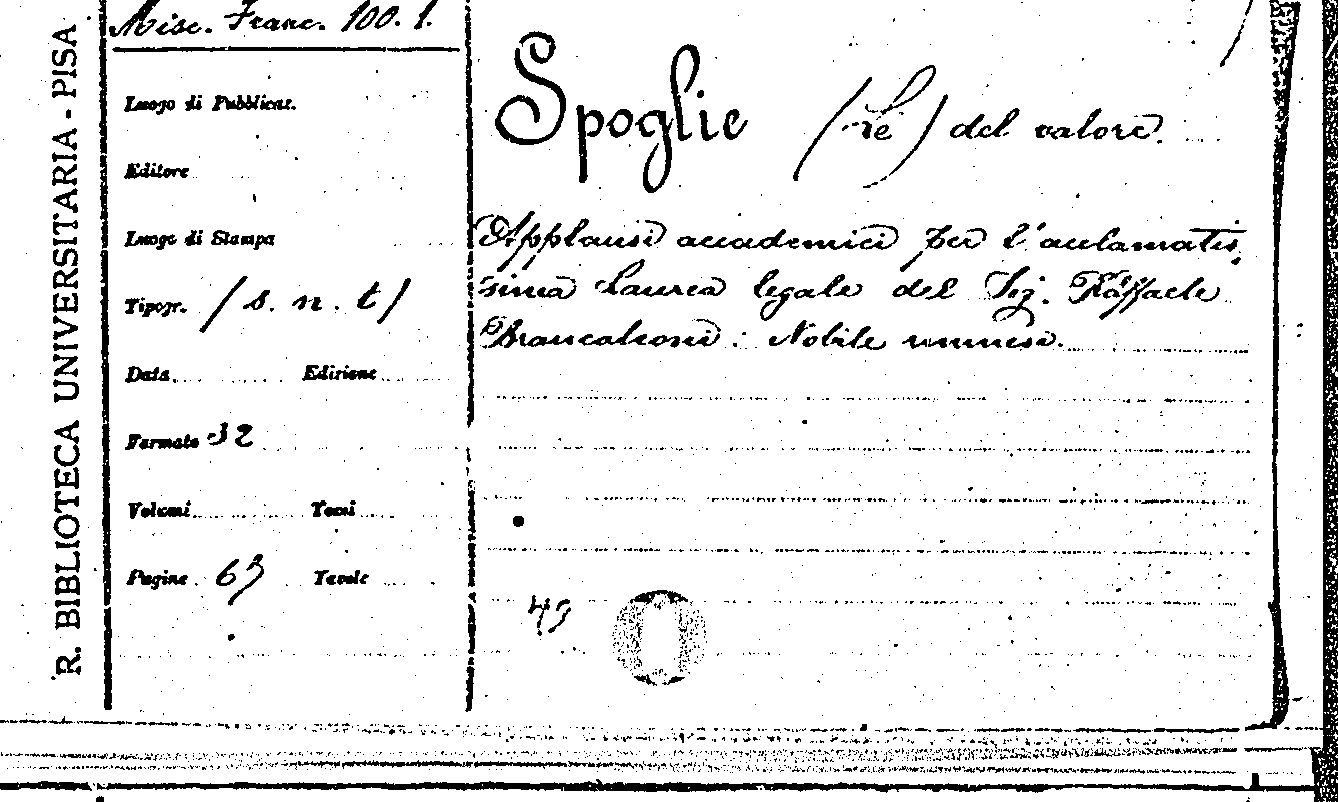 R. BIBLIOTECA UNIVERSITARIA - PISA
Misc. Franc. 100. 1.
Luogo di Pubblicaz.
Editore
Luogo di Stampa
Tipogr. / s. n. t /
Data Edizione
Formato 32
Volumi Tomi
Pagine 63 Tavole
Spoglie (Le) del valore.
Applausi accademici per l'acclamatis,
sima Laurea legale del Sig. Raffaele
Brancaleoni: Nobile
43